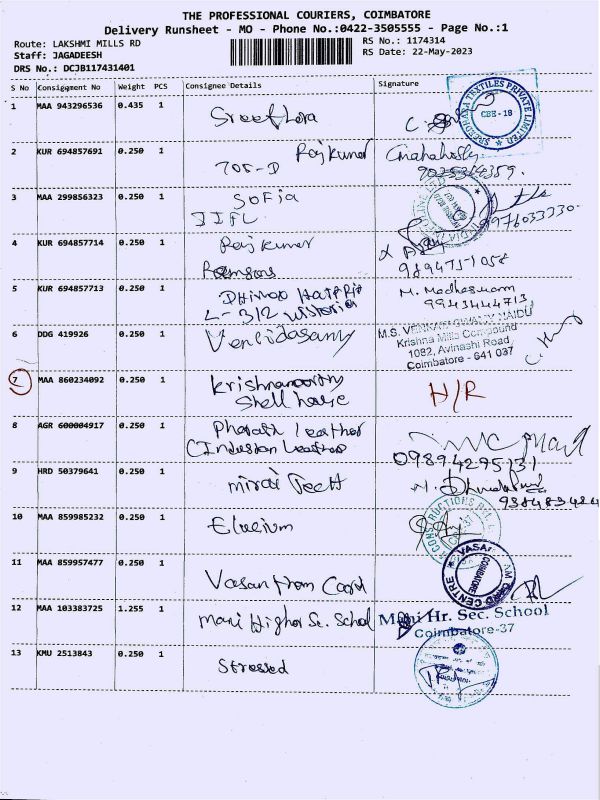 THE PROFESSIONAL COURIERS, COIMBATORE
Delivery Runsheet - MO - Phone No.:0422-3505555 - Page No.:1
Route: LAKSHMI MILLS RD
RS No.: 1174314
Staff: JAGADEESH
RS Date: 22-May-2023
DRS No.: DCJB117431401
S No Consignment No Weight PCS Consignee Details Signature
1 MAA 943296536 0.435 1
SREEDHARA TEXTILES PRIVATE LIMITED
CBE - 18
2 KUR 694857691 0.250 1 Rajkumar
705-D
3 MAA 299856323 0.250 1 Sofia
IIFL
9976033330
4 KUR 694857714 0.250 1 Rajkumar
5 KUR 694857713 0.250 1
L-312
M. Madheswaran
9943444713
6 DDG 419926 0.250 1
M.S. VENKATASWAMY NAIDU
Krishna Mills Compound
1082, Avinashi Road
Coimbatore - 641 037
7 MAA 860234092 0.250 1 Krishnamoorthy
Shell house
H/R
8 AGR 600004917 0.250 1 Bharath Leather
Leather
9 HRD 50379641 0.250 1 Mirai Tech
10 MAA 859985232 0.250 1 Elysium
CONSTRUCTIONS
11 MAA 859957477 0.250 1 Vasantham Card
COIMBATORE
CARD CENTRE
12 MAA 103383725 1.255 1 Mani Higher Sc. School
Mani Hr. Sec. School
Coimbatore-37
13 KMU 2513843 0.250 1 Stressed